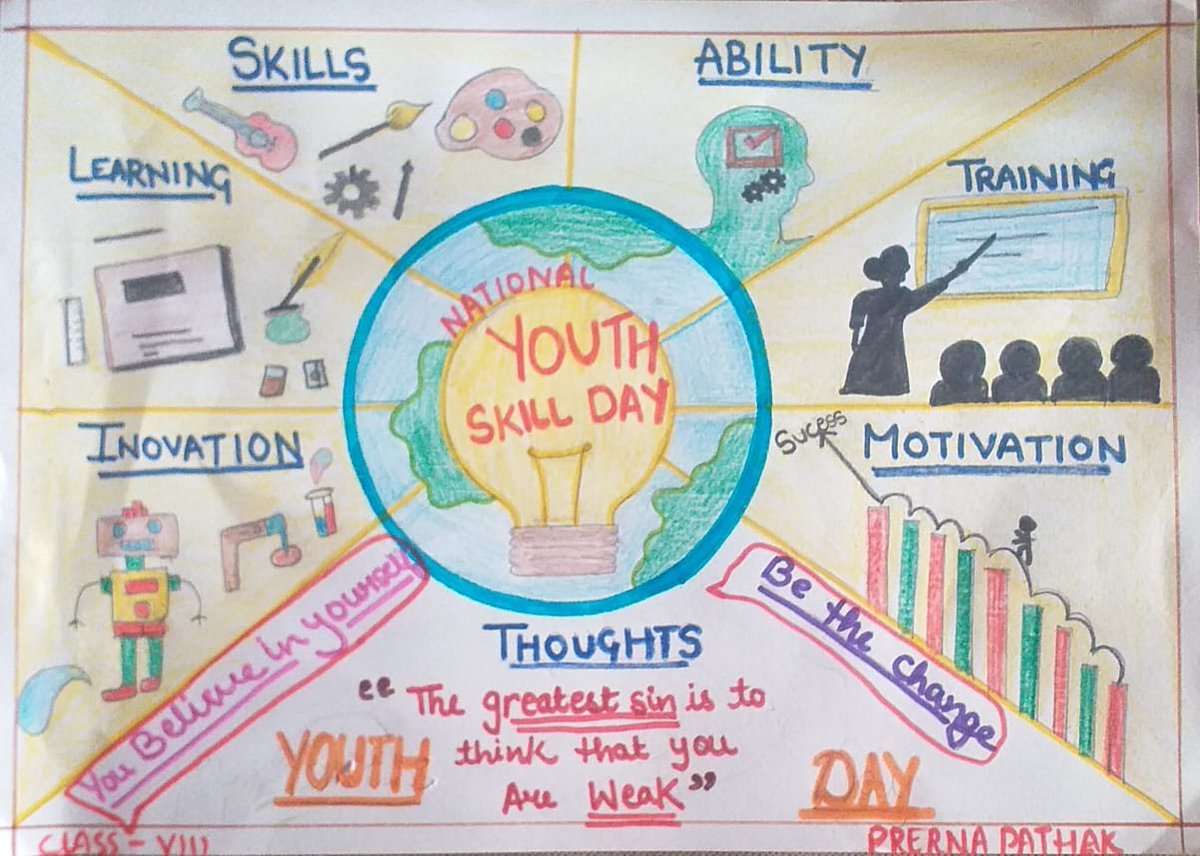 SKILLS
ABILITY
LEARNING
TRAINING
NATIONAL
YOUTH
SKILL DAY
INOVATION
Sucess
MOTIVATION
You Believe in yourself
Be the change
THOUGHTS
"The greatest sin is to
think that you
Are Weak"
YOUTH
DAY
CLASS - VIII
PRERNA PATHAK